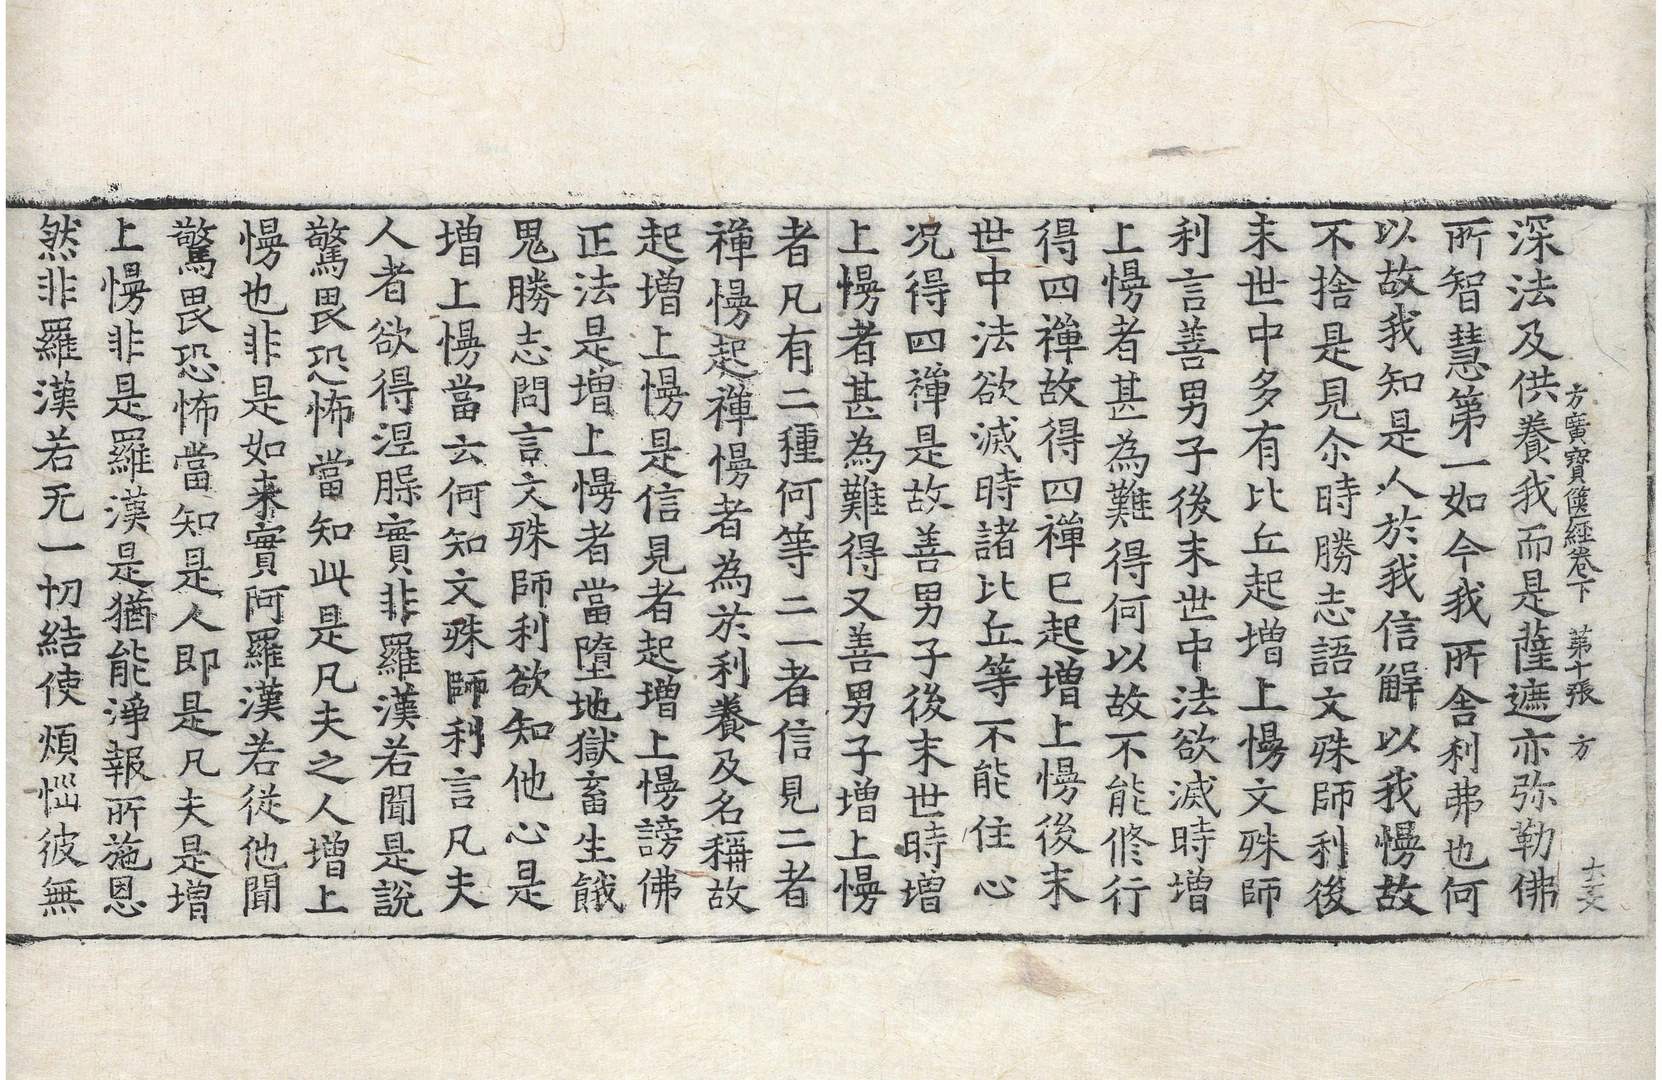 方廣寶篋經卷下　第十張　方　大文
深法及供養我而是薩遮亦弥勒佛
所智慧第一如今我所舍利弗也何
以故我知是人於我信解以我慢故
不捨是見尒時勝志語文殊師利後
末世中多有比丘起增上慢文殊師
利言善男子後末世中法欲滅時增
上慢者甚為難得何以故不能修行
得四禪故得四禪已起增上慢後末
世中法欲滅時諸比丘等不能住心
况得四禪是故善男子後末世時增
上慢者甚為難得又善男子增上慢
者凡有二種何等二一者信見二者
禪慢起禪慢者為於利養及名稱故
起增上慢是信見者起增上慢謗佛
正法是增上慢者當墮地獄畜生餓
鬼勝志問言文殊師利欲知他心是
增上慢當云何知文殊師利言凡夫
人者欲得涅槃實非羅漢若聞是說
驚畏恐怖當知此是凡夫之人增上
慢也非是如来實阿羅漢若從他聞
驚畏恐怖當知是人即是凡夫是增
上慢非是羅漢是猶能淨報所施恩
然非羅漢若无一切結使煩惱彼無